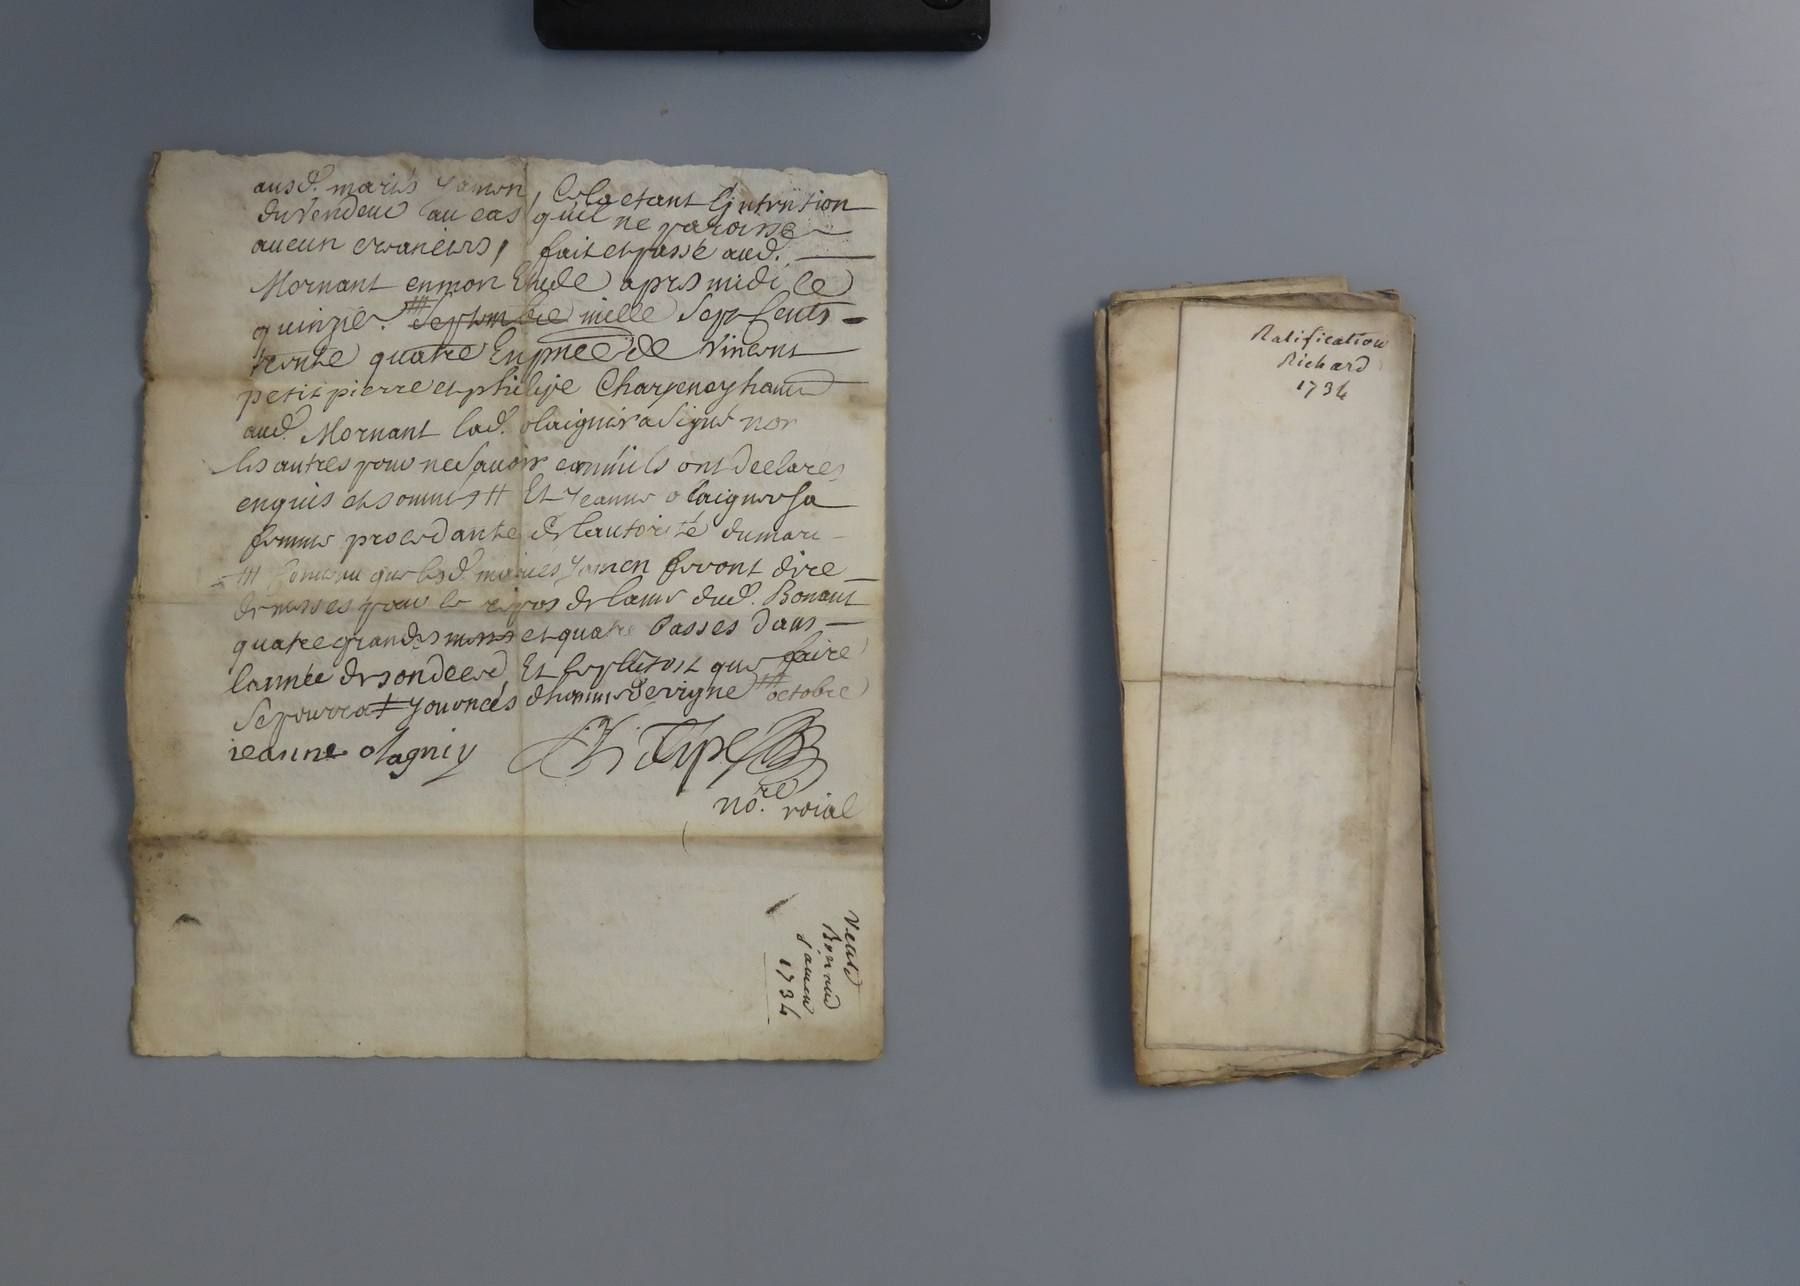 ausd. mariés Jamen, Cela etant L'jntention
du Vendeur au cas qu'il ne paroisse
aucun creanciers, fait et passé aud.
Mornant en mon Etude apres midi le
quinzie. ⵌ Septembre mille Sept Cents
trente quatre En pnce de Vincent
petit pierre et philipe Charpeney
aud. Mornant lad. olaignier a Signé non
les autres pour ne Sauoir comm'ils ont declarés
enquis et sommés # Et Jeanne olaignier Sa
femme procedante de L'autorité du mari
ⵌ Convenu que lesd. mariés Jamen feront dire
de messes pour le repos de L'ame dud. Bonaud
quatre grandes messes et quatre basses dans
L'année de son deced Et le plutost que faire
Se pourra # journées d'homme de vigne ⵌ octobre
jeanne olagniy
no.re roial
Vente
Bonnaud
Jamen
1734
Ratification
Richard
1734